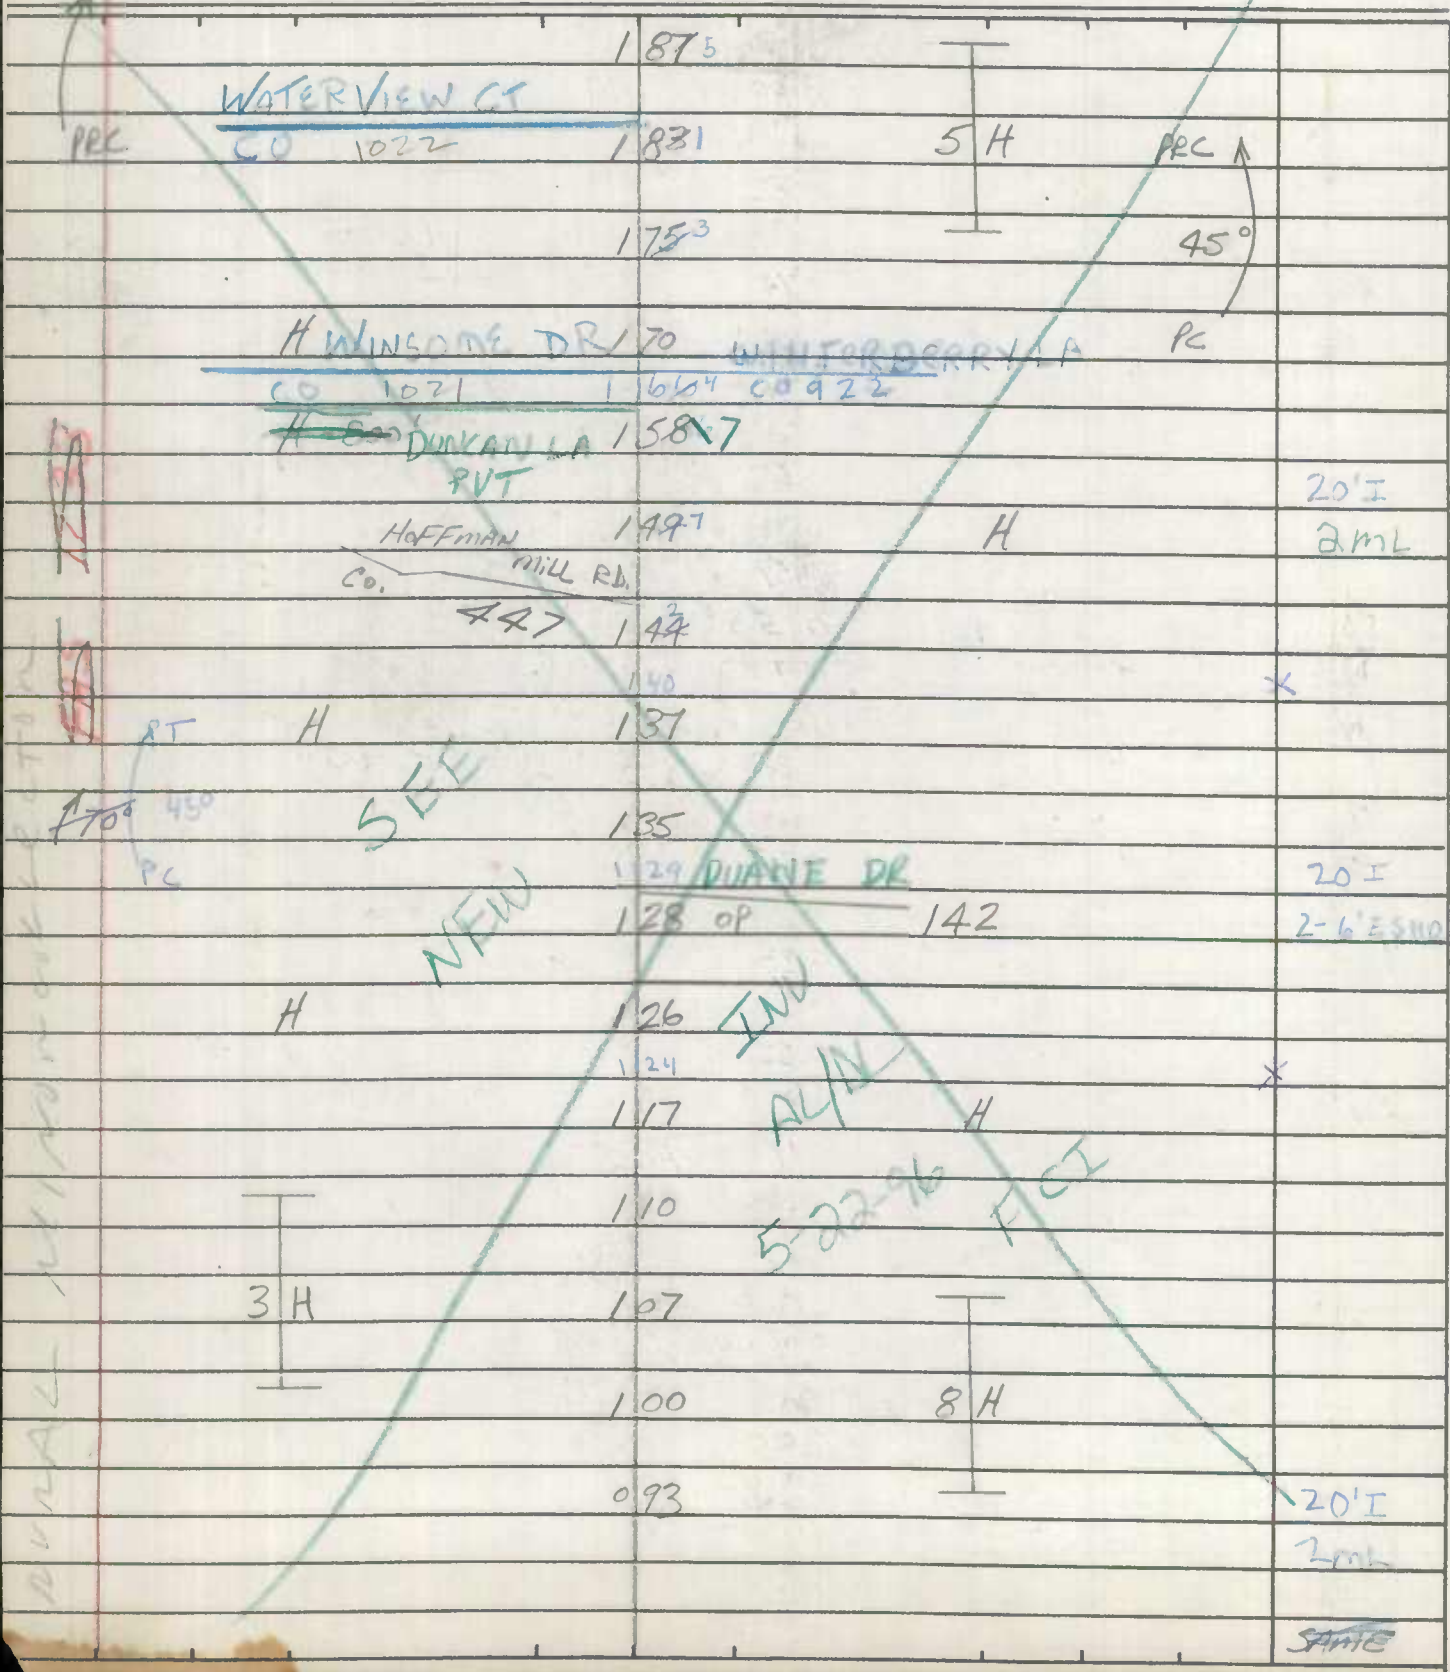 1 87 5
WATERVIEW CT
PRC CO 1022 1 831 5 H PRC
1 75 3 45°
H WINSOME DR 1 70 WINTERBERRY LA PC
CO 1021 1 66 4 CO 922
H DUNCAN LA 1 58 7
PVT 20' I
HOFFMAN 1 49 7 H 2 ML
MILL RD.
CO.
447 1 44 2
1 40 X
PT H 1 37
SEE
70° 450 1 35
PC 1 29 DUANE DR 20' I
NEW 1 28 OP 142 2-6' E SHO
H 1 26 INV
1 24 X
1 17 ALIN H
1 10 5-22-96 F CI
3 H 1 07
1 00 8 H
0 93 20' I
2 ML
SAME